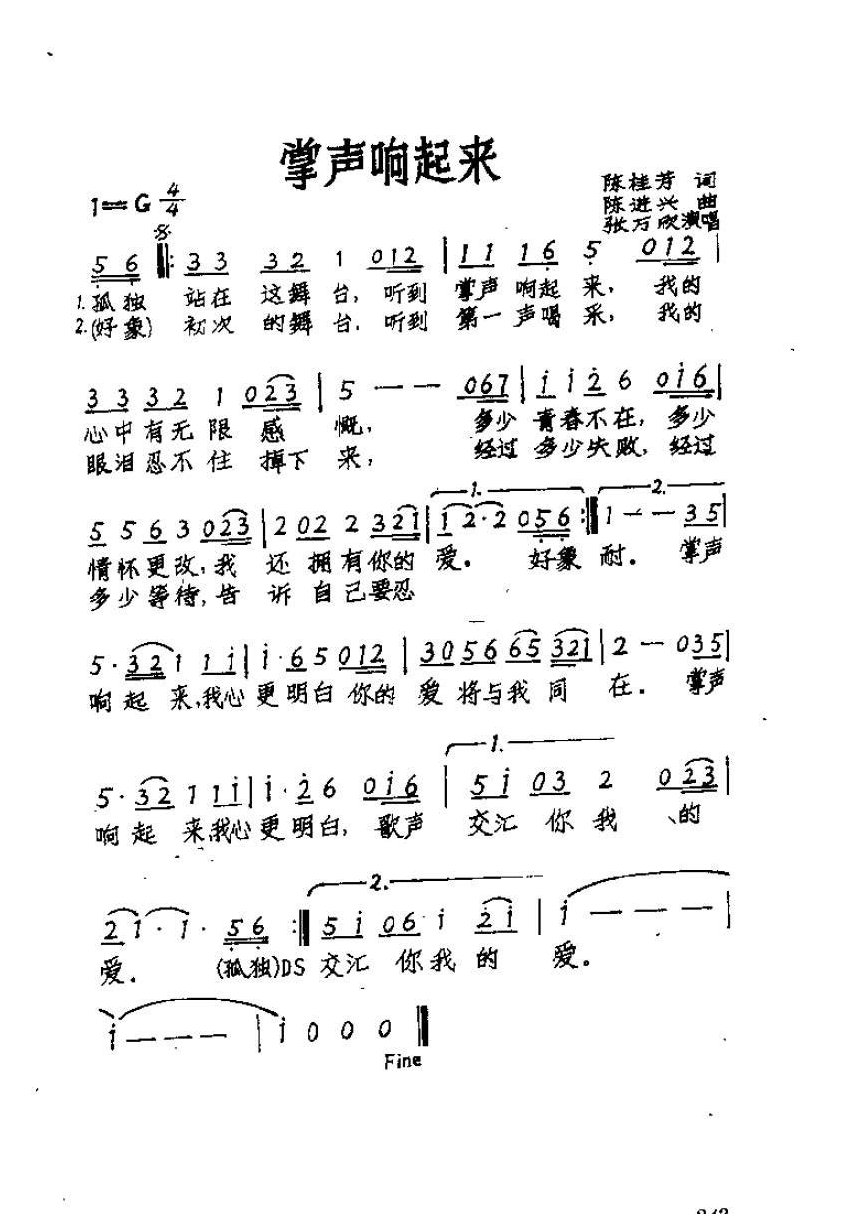 掌声响起来
1=G 4/4
陈桂芳 词
陈进兴 曲
张万欣演唱
5 6 ‖: 3 3 3 2 1 0 1 2 | 1 1 1 6 5 0 1 2 |
1.孤独 站在 这舞 台,听到 掌声 响起 来,我的
2.(好象) 初次 的舞 台,听到 第一 声喝 采,我的
3 3 3 2 1 0 2 3 | 5 — — 0 6 7 | i i 2 6 0 i 6 |
心中有无限感 慨, 多少青春不在,多少
眼泪忍不住掉下来, 经过多少失败,经过
5 5 6 3 0 2 3 | 2 0 2 2 3 2 1 | 1. 1 2 · 2 0 5 6 :‖ 2. 1 — — 3 5 |
情怀更改,我 还 拥有你的 爱。 好象 耐。 掌声
多少等待,告 诉 自己要忍
5 · 3 2 1 1 i | i · 6 5 0 1 2 | 3 0 5 6 6 5 3 2 1 | 2 — 0 3 5 |
响起 来,我心更明白你的 爱将与我同 在。 掌声
1.
5 · 3 2 1 1 i | i · 2 6 0 i 6 | 5 i 0 3 2 0 2 3 |
响起 来,我心更明白,歌声 交汇 你我、的
2.
2 1 · 1 · 5 6 :‖ 5 i 0 6 i 2 i | i — — — |
爱。 (孤独)DS 交汇 你我的 爱。
i — — — | i 0 0 0 ‖
Fine